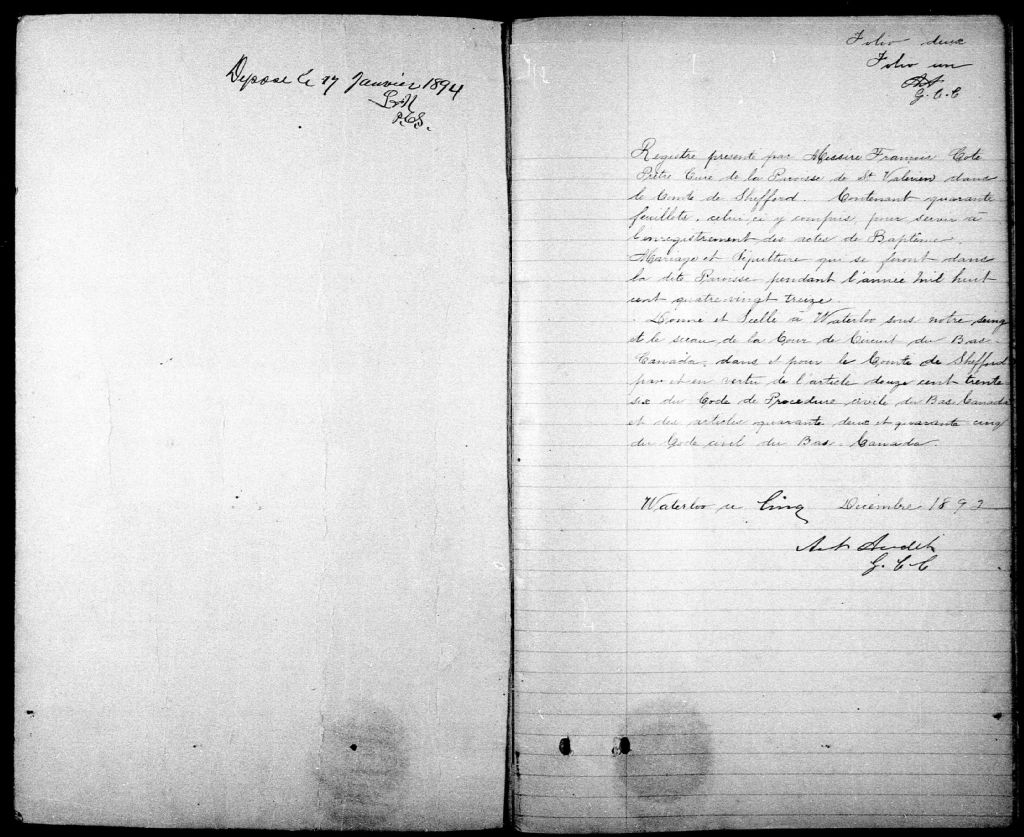 Deposé le 17 Janvier 1894
P.C.S.
Folio deux
Folio un
AA
G. C. C
Registre presenté par Messire François Coté
Prêtre Curé de la Paroisse de St Valerien dans
le Comté de Shefford. Contenant quarante
feuillets, celui ci y compris, pour servir à
l'enregistrement des actes de Baptême
Mariage et Sépulture que se feront dans
la dite Paroisse pendant l'année Mil huit
cent quatre-vingt treize.
Donné et Scellé à Waterloo sous notre seing
et le sceau de la Cour de Circuit du Bas-
Canada, dans et pour le Comté de Shefford
par et en vertu de l'article douze cent trente
six du Code de Procedure civile du Bas Canada
et des articles quarante deux et quarante cinq
du Code civil du Bas-Canada.
Waterloo ce Cinq Décembre 1892
Ant Audet
G. C C